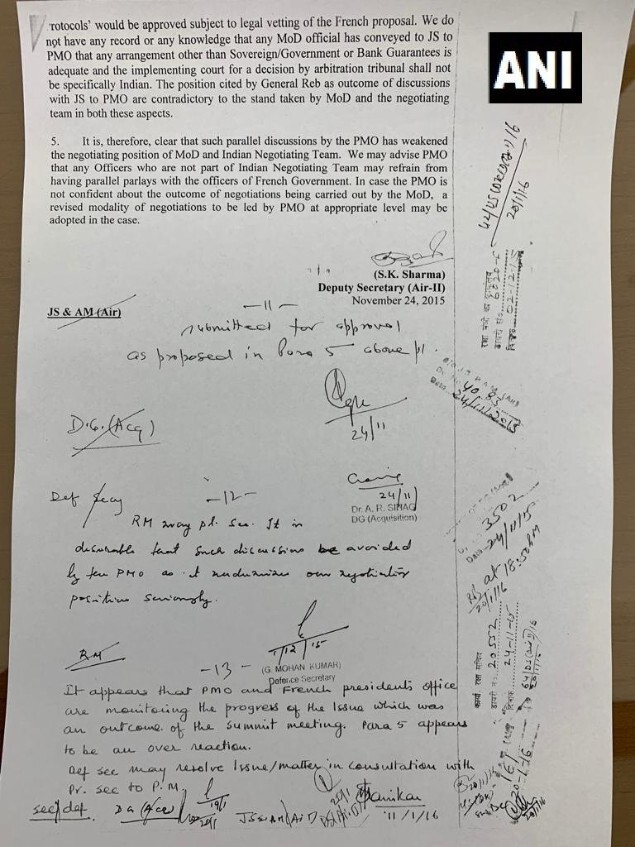 rotocols' would be approved subject to legal vetting of the French proposal. We do
not have any record or any knowledge that any MoD official has conveyed to JS to
PMO that any arrangement other than Sovereign/Government or Bank Guarantees is
adequate and the implementing court for a decision by arbitration tribunal shall not
be specifically Indian. The position cited by General Reb as outcome of discussions
with JS to PMO are contradictory to the stand taken by MoD and the negotiating
team in both these aspects.
5. It is, therefore, clear that such parallel discussions by the PMO has weakened
the negotiating position of MoD and Indian Negotiating Team. We may advise PMO
that any Officers who are not part of Indian Negotiating Team may refrain from
having parallel parlays with the officers of French Government. In case the PMO is
not confident about the outcome of negotiations being carried out by the MoD, a
revised modality of negotiations to be led by PMO at appropriate level may be
adopted in the case.
ANI
(S.K. Sharma)
Deputy Secretary (Air-II)
November 24, 2015
JS & AM (Air)
-11-
submitted for approval
as proposed in Para 5 above pl.
24/11
D.G. (Acq)
24/11
Dr. A. R. SIHAG
DG (Acquisition)
Def Secy
-12-
RM may pl. see. It is
desirable that such discussions be avoided
by the PMO as it undermines our negotiating
position seriously.
1/12/15
(G. MOHAN KUMAR)
Defence Secretary
RM
-13-
It appears that PMO and French president's office
are monitoring the progress of the Issue which was
an outcome of the summit meeting. Para 5 appears
to be an over reaction.
Def sec may resolve Issue/matter in consultation with
Pr. sec to P.M.
sec/def
DG (Acq)
JS & AM (Air)
11/1/16
20/1/16
24/11/2015
3502
24/11/15
at 18:50 PM
20/1/16
20552
24-11-15
20-1-16